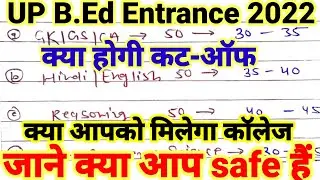 UP B.Ed Entrance 2022
(a) GK/GS/CA → 50 → 30 - 35
क्या होगी कट-ऑफ
Hindi/English 50 → 35 - 40
(c) Reasoning 50 → 40 - 45
क्या आपको मिलेगा कॉलेज
जाने क्या आप safe हैं